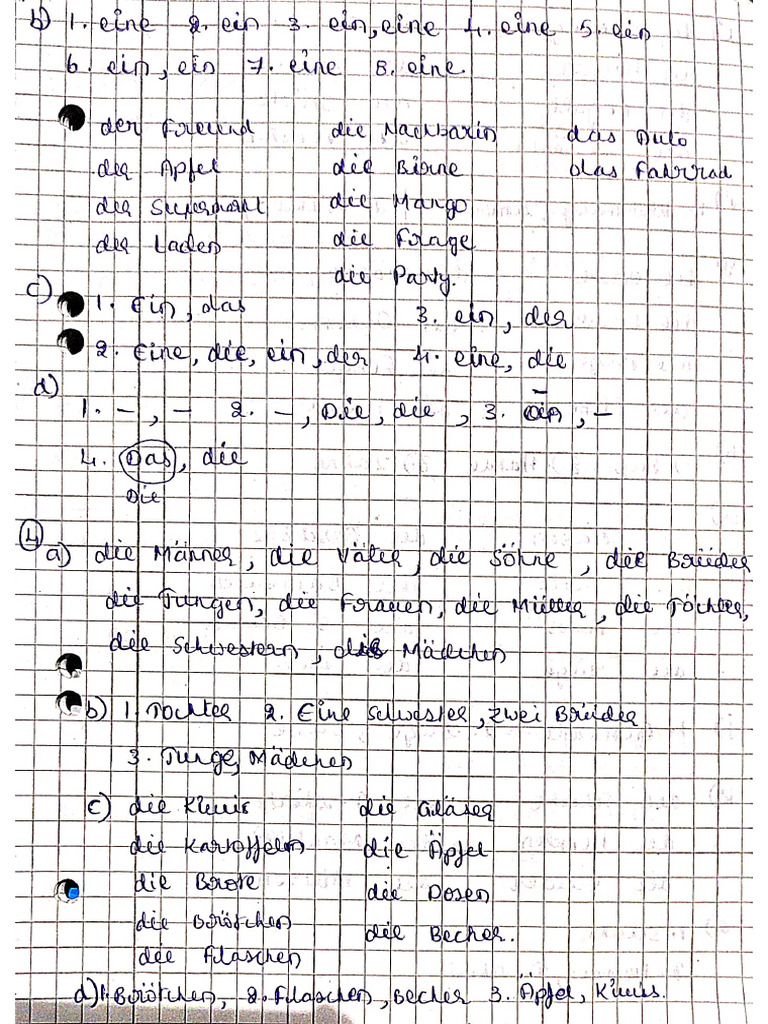 b) 1. eine 2. ein 3. ein, eine 4. eine 5. ein
6. ein, ein 7. eine 8. eine.
der Freund die Nachbarin das Auto
der Apfel die Birne das Fahrrad
der Supermarkt die Mango
der Laden die Frage
die Party.
c) 1. Ein, das 3. ein, der
2. Eine, die, ein, der 4. eine, die
d)
1. –, – 2. –, Die, die, 3. –, –
4. Das, die
Die
4 a) die Männer, die Väter, die Söhne, die Brüder
die Jungen, die Frauen, die Mütter, die Töchter,
die Schwestern, die Mädchen
b) 1. Tochter 2. Eine Schwester, zwei Brüder
3. Junge, Mädchen
c) die Kiwis die Gläser
die Kartoffeln die Äpfel
die Brote die Dosen
die Brötchen die Becher.
die Flaschen
d) 1. Brötchen, 2. Flaschen, Becher 3. Äpfel, Kiwis.